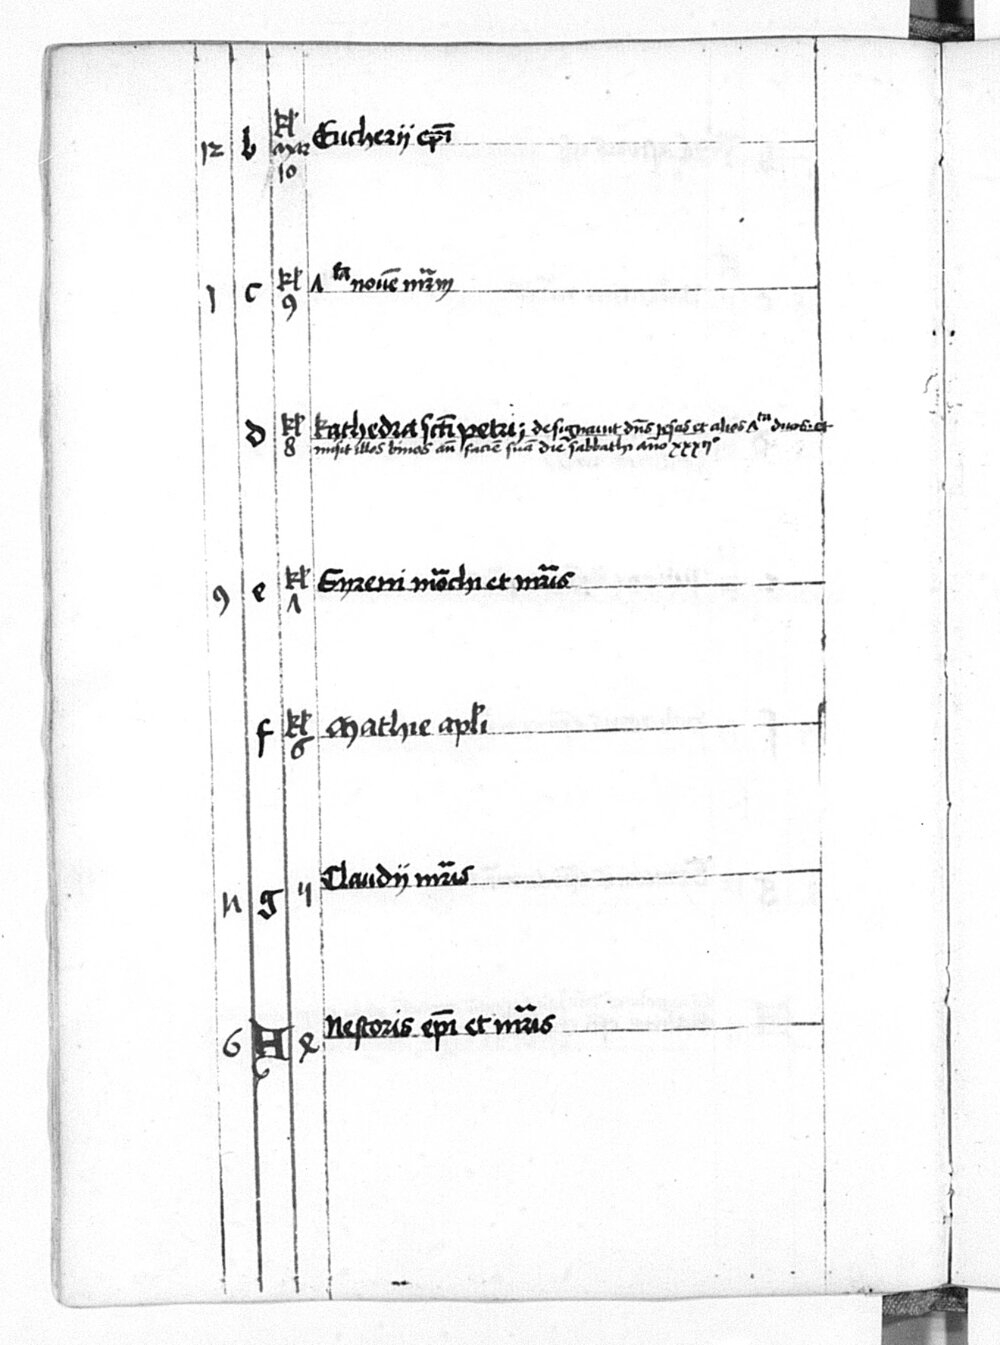 12 b kl Mar 10 Eucherij epī
1 c kl 9 Λ ta nouē mr̄m
d kl 8 kathedra sctī petri; designauit dn̄s Jesus et alios Λ ta duos: et
misit illos binos an̄ faciē suā die sabbathi año xxxij°
9 e kl Λ Syreni mōchi et mr̄is
f kl 6 Mathie apl̄i
11 g 4 Claudij mr̄is
6 A 2 Nestoris ep̄i et mr̄is